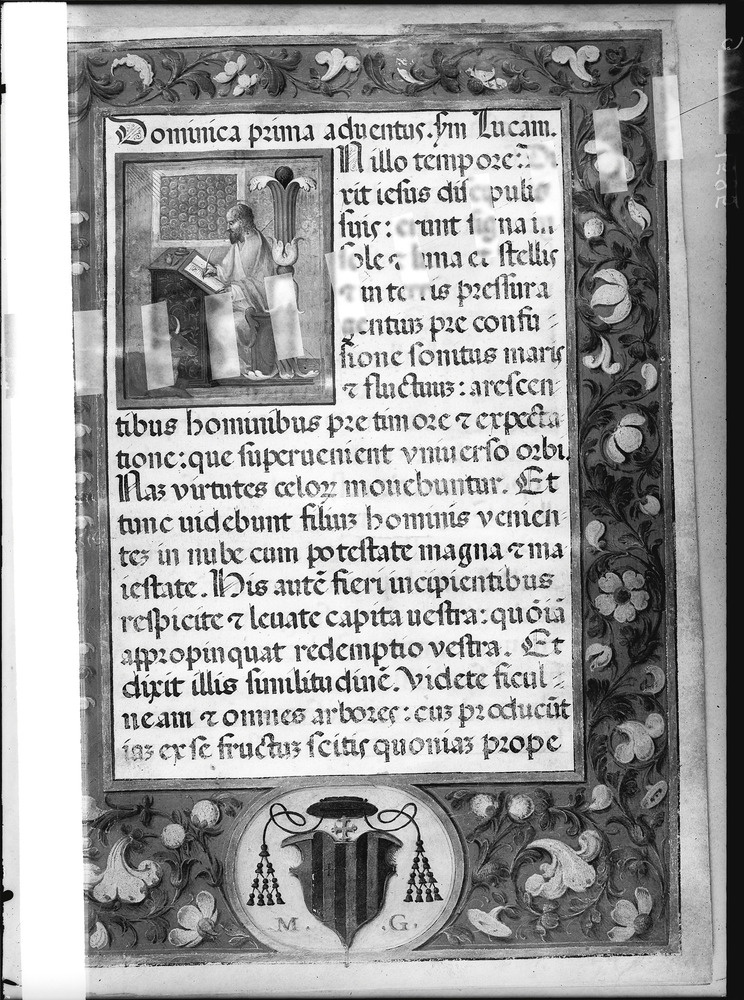 Dominica prima aduentus. sm̄ Lucam.
N illo tempore: Di
xit iesus discipulis
suis: erunt signa in
sole ⁊ luna et stellis
⁊ in terris pressura
gentiuꝫ pre confu-
sione sonitus maris
⁊ fluctuuꝫ: arescen
tibus hominibus pre timore ⁊ expecta
tione: que superuenient vniuerso orbi.
Naꝫ virtutes celoꝝ mouebuntur. Et
tunc uidebunt filiuꝫ hominis venien
teꝫ in nube cum potestate magna ⁊ ma
iestate. His autē fieri incipientibus
respicite ⁊ leuate capita uestra: quōiā
appropinquat redemptio vestra. Et
dixit illis similitudinē. Videte ficul-
neam ⁊ omnes arbores: cuꝫ producūt
iaꝫ ex se fructuꝫ scitis quoniaꝫ prope
M. .G.